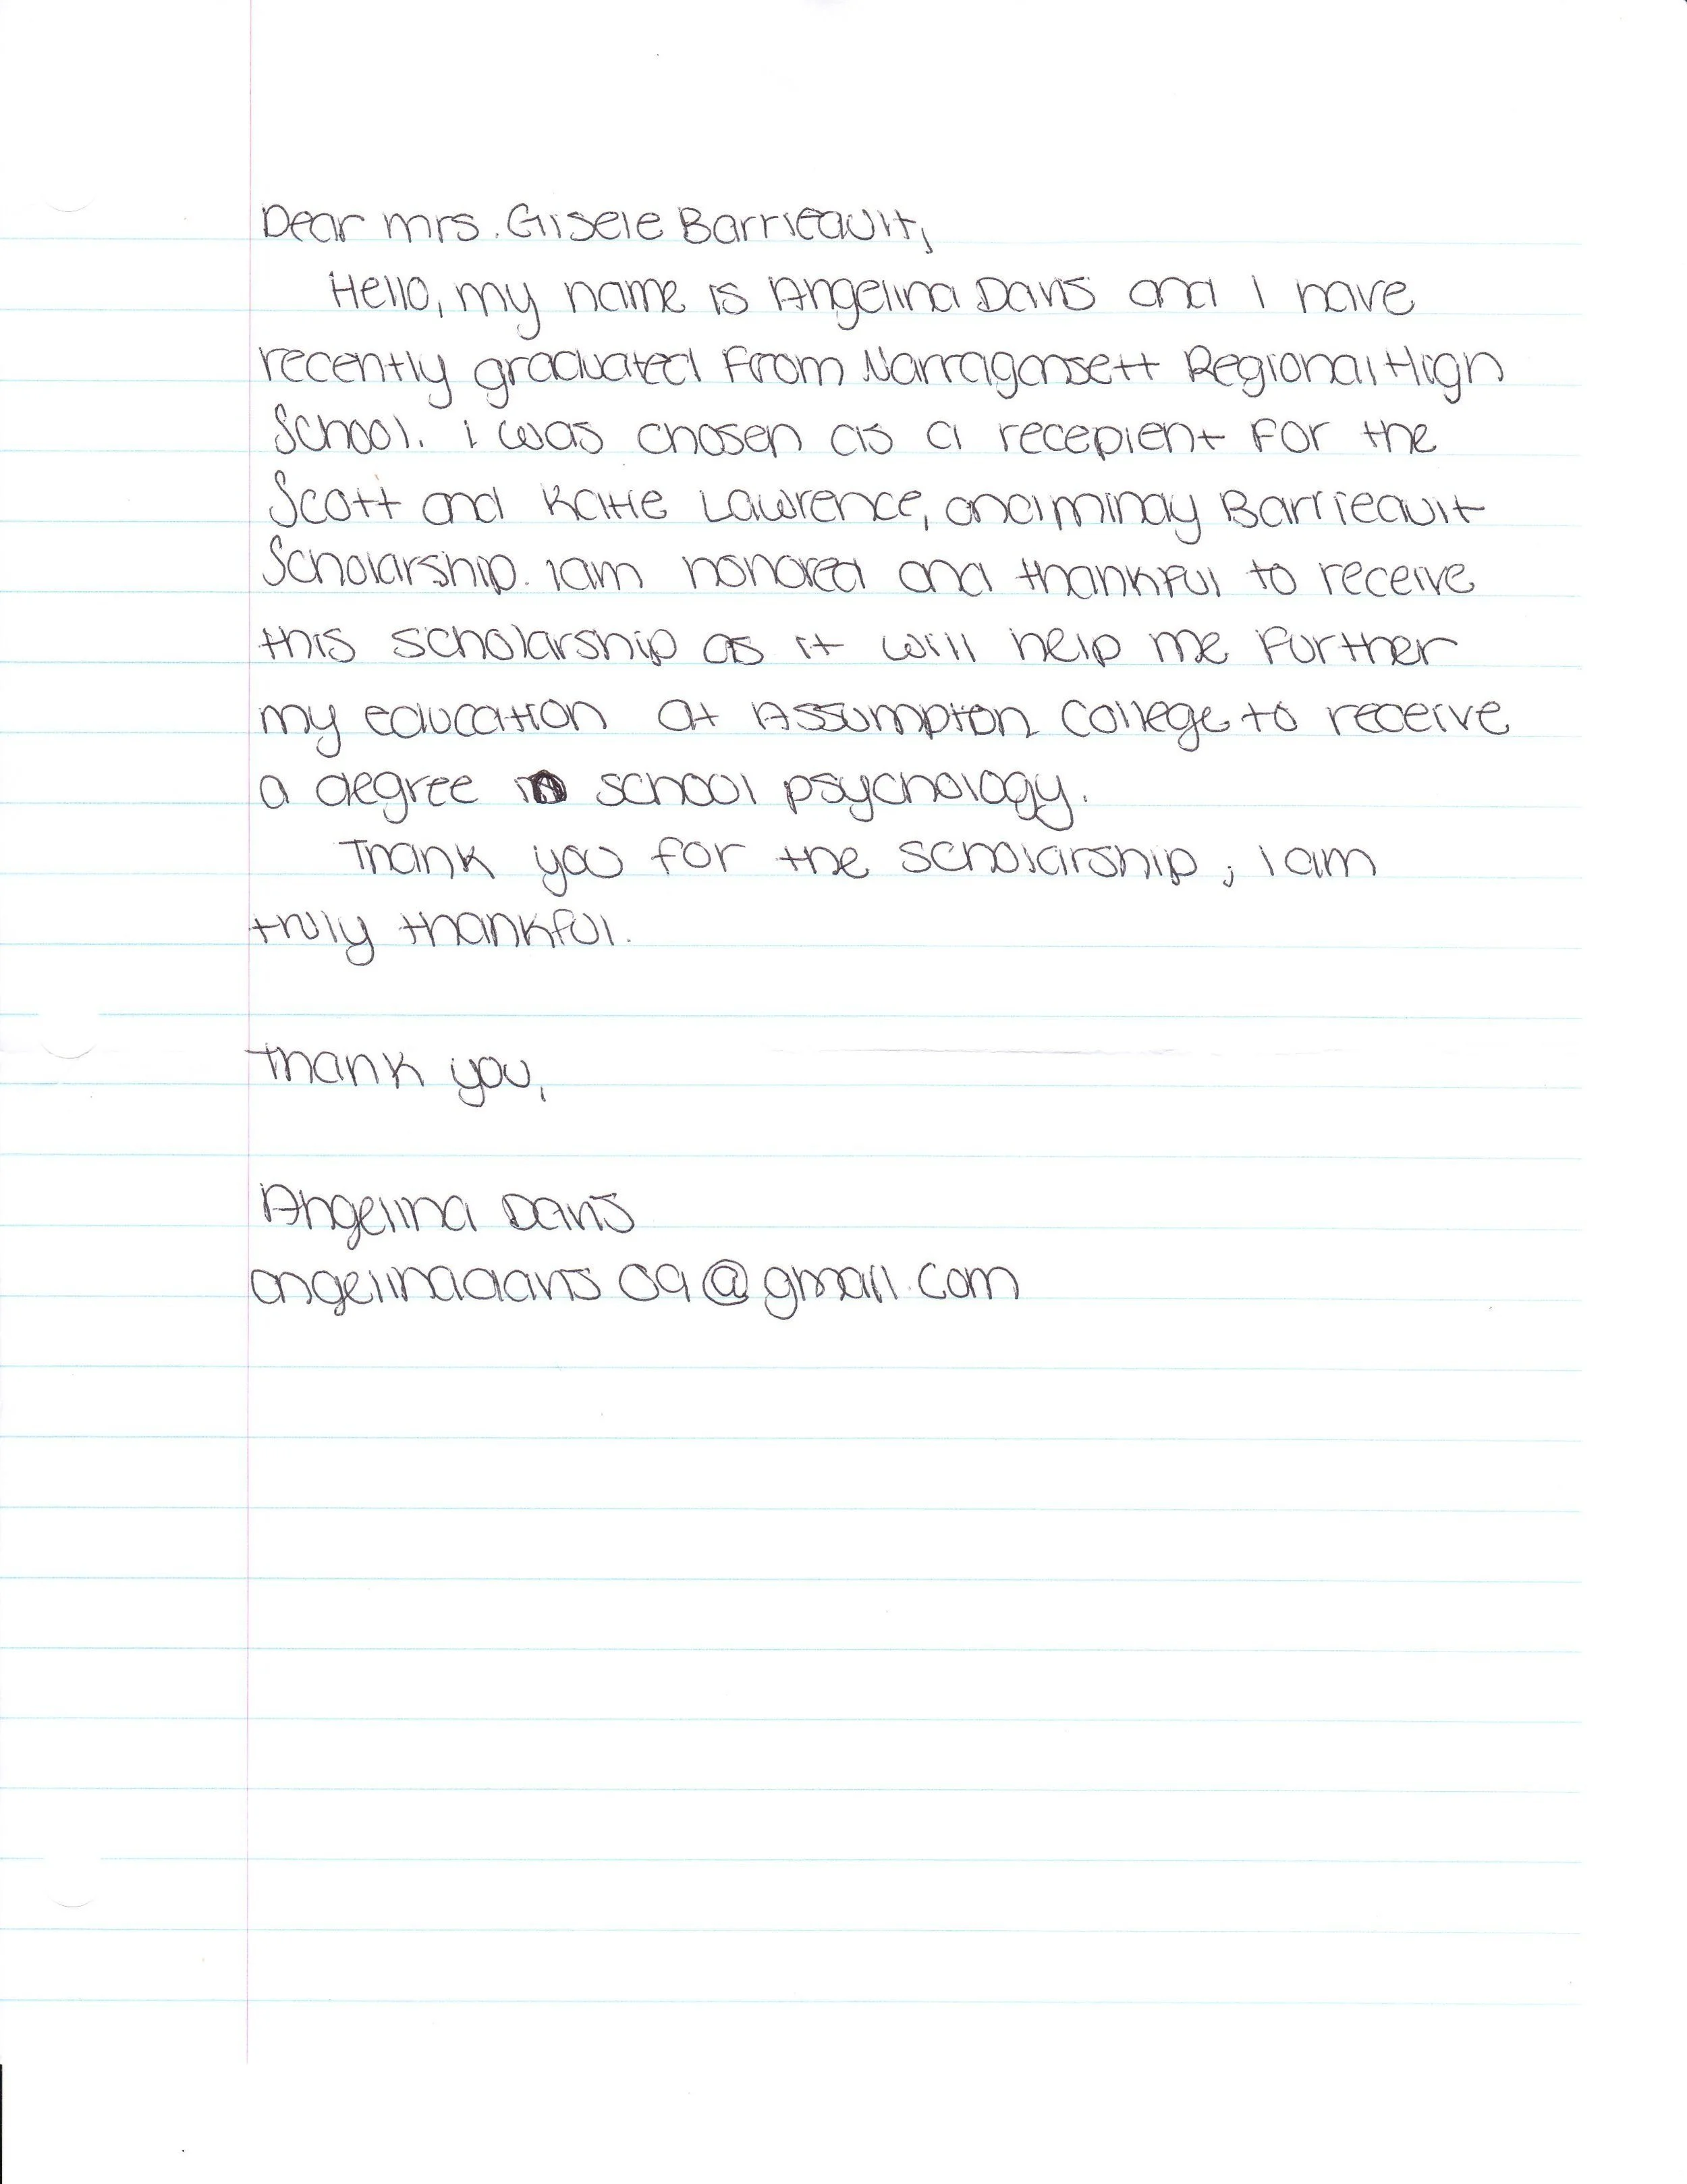 Dear mrs. Gisele Barrieault,
Hello, my name is Angelina Davis and I have
recently graduated from Narragansett Regional High
School. i was chosen as a recepient for the
Scott and Katie Lawrence, and mindy Barrieault
Scholarship. i am honored and thankful to receive
this scholarship as it will help me further
my education at Assumption College to receive
a degree in school psychology.
Thank you for the scholarship, i am
truly thankful.
Thank you,
Angelina Davis
angelinadavis09@gmail.com